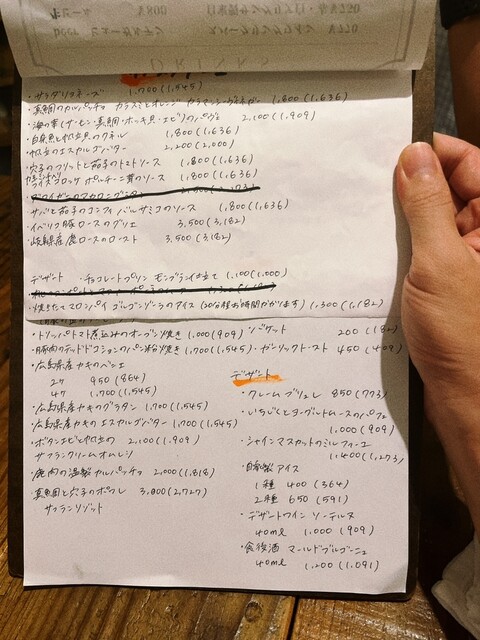 ・サラダリヨネーズ 1,700 (1,545)
・真鯛のカルパッチョ カラスミとオレンジ 1,800 (1,636)
・海の幸(サーモン・真鯛・ホッキ貝・エビ)の 2,100 (1,909)
・白身魚と帆立貝のクネル 1,800 (1,636)
・帆立のエスカルゴバター 2,200 (2,000)
・穴子のフリットと茄子のトマトソース 1,800 (1,636)
ライスコロッケ ポルチーニ茸のソース 1,800 (1,636)
サバと茄子のコンフィ バルサミコのソース 1,800 (1,636)
・イベリコ豚ロースのグリエ 3,500 (3,182)
・岐阜県産鹿ロースのロースト 3,500 (3,182)
デザート ・チョコレートプリン モンブラン仕立て 1,100 (1,000)
・焼きたてマロンパイ ゴルゴンゾーラのアイス (20分程お時間かかります) 1,300 (1,182)
・トリッパトマト煮込みのオーブン焼き 1,000 (909)
・豚肉のテットドコションのパン粉焼き 1,700 (1,545)
・広島県産カキのベニエ
2ケ 950 (864)
4ケ 1,700 (1,545)
・広島県産カキのグラタン 1,700 (1,545)
・広島県産カキのエスカルゴバター 1,700 (1,545)
・ボタンエビと帆立の 2,100 (1,909)
サフランクリームオムレツ
・鹿肉の燻製カルパッチョ 2,000 (1,818)
・真鯛と穴子のポワレ 3,000 (2,727)
サフランリゾット
・バゲット 200 (182)
・ガーリックトースト 450 (409)
デザート
・クレームブリュレ 850 (773)
・いちじくとヨーグルトムースのパフェ
1,000 (909)
・シャインマスカットのミルフィーユ
1,400 (1,273)
・自家製アイス
1種 400 (364)
2種 650 (591)
・デザートワイン ソーテルヌ
40ml 1,000 (909)
・食後酒 マールドブルゴーニュ
40ml 1,200 (1,091)